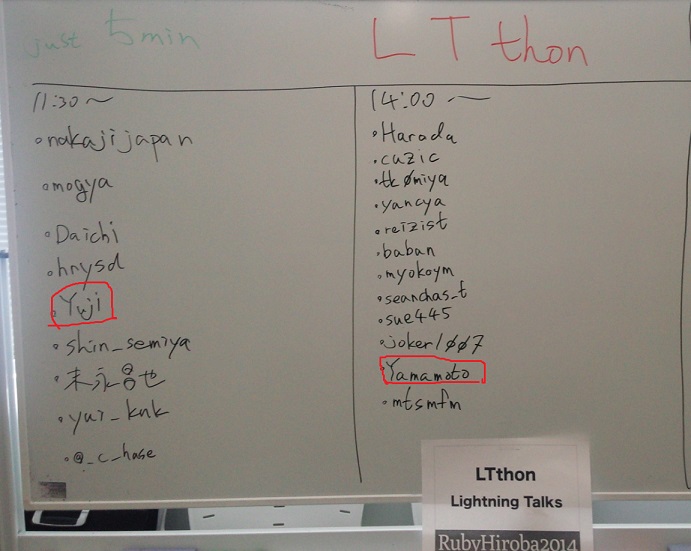 just 5min
LTthon
11:30〜
・nakajijapan
・mogya
・Daichi
・hnysd
・Yuji
・shin_semiya
・末永昌也
・yui_knk
・@_c_hase
14:00 〜
・Harada
・cuzic
・tk0miya
・yancya
・reizist
・baban
・myokoym
・seanchas_t
・sue445
・joker1007
・Yamamoto
・mtsmfm
LTthon
Lightning Talks
RubyHiroba2014